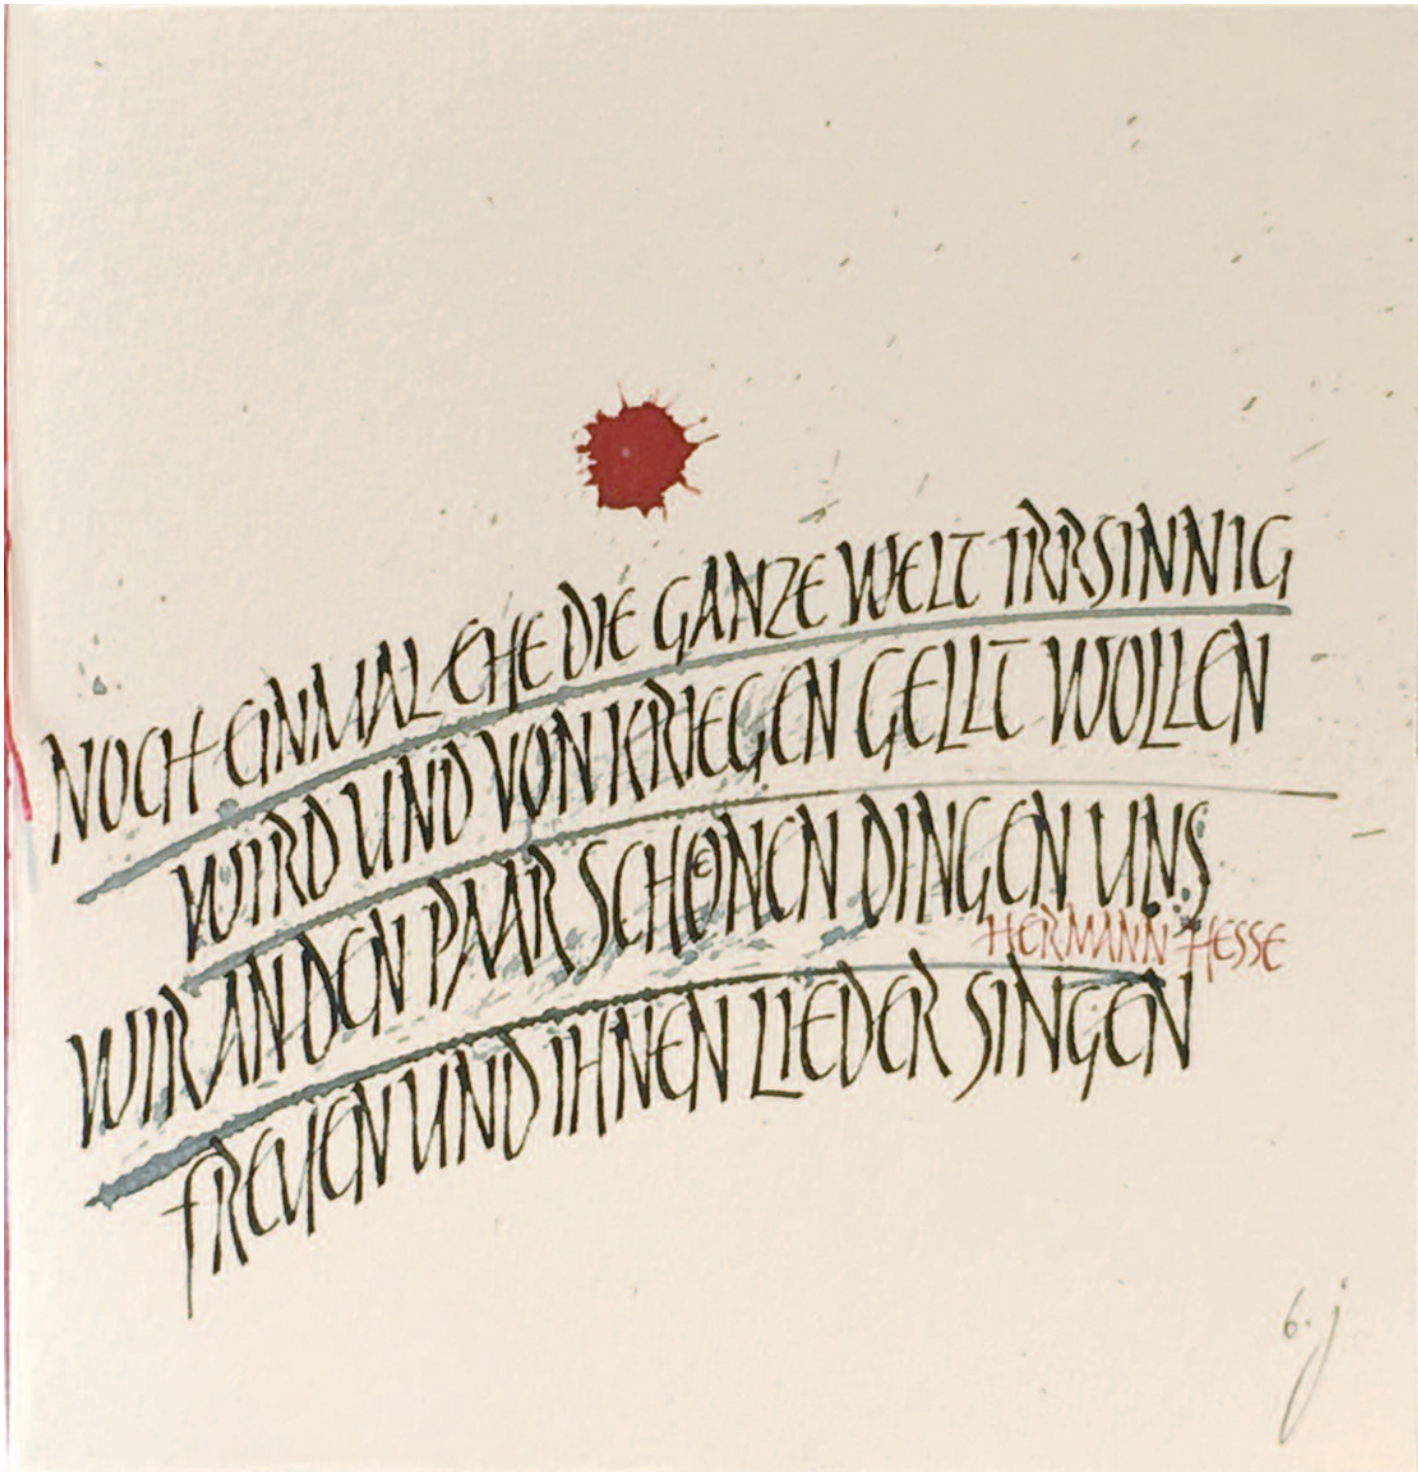 NOCH EINMAL EHE DIE GANZE WELT IRRSINNIG
WIRD UND VON KRIEGEN GELLT WOLLEN
WIR AN DEN PAAR SCHÖNEN DINGEN UNS
HERMANN HESSE
FREUEN UND IHNEN LIEDER SINGEN
6. j